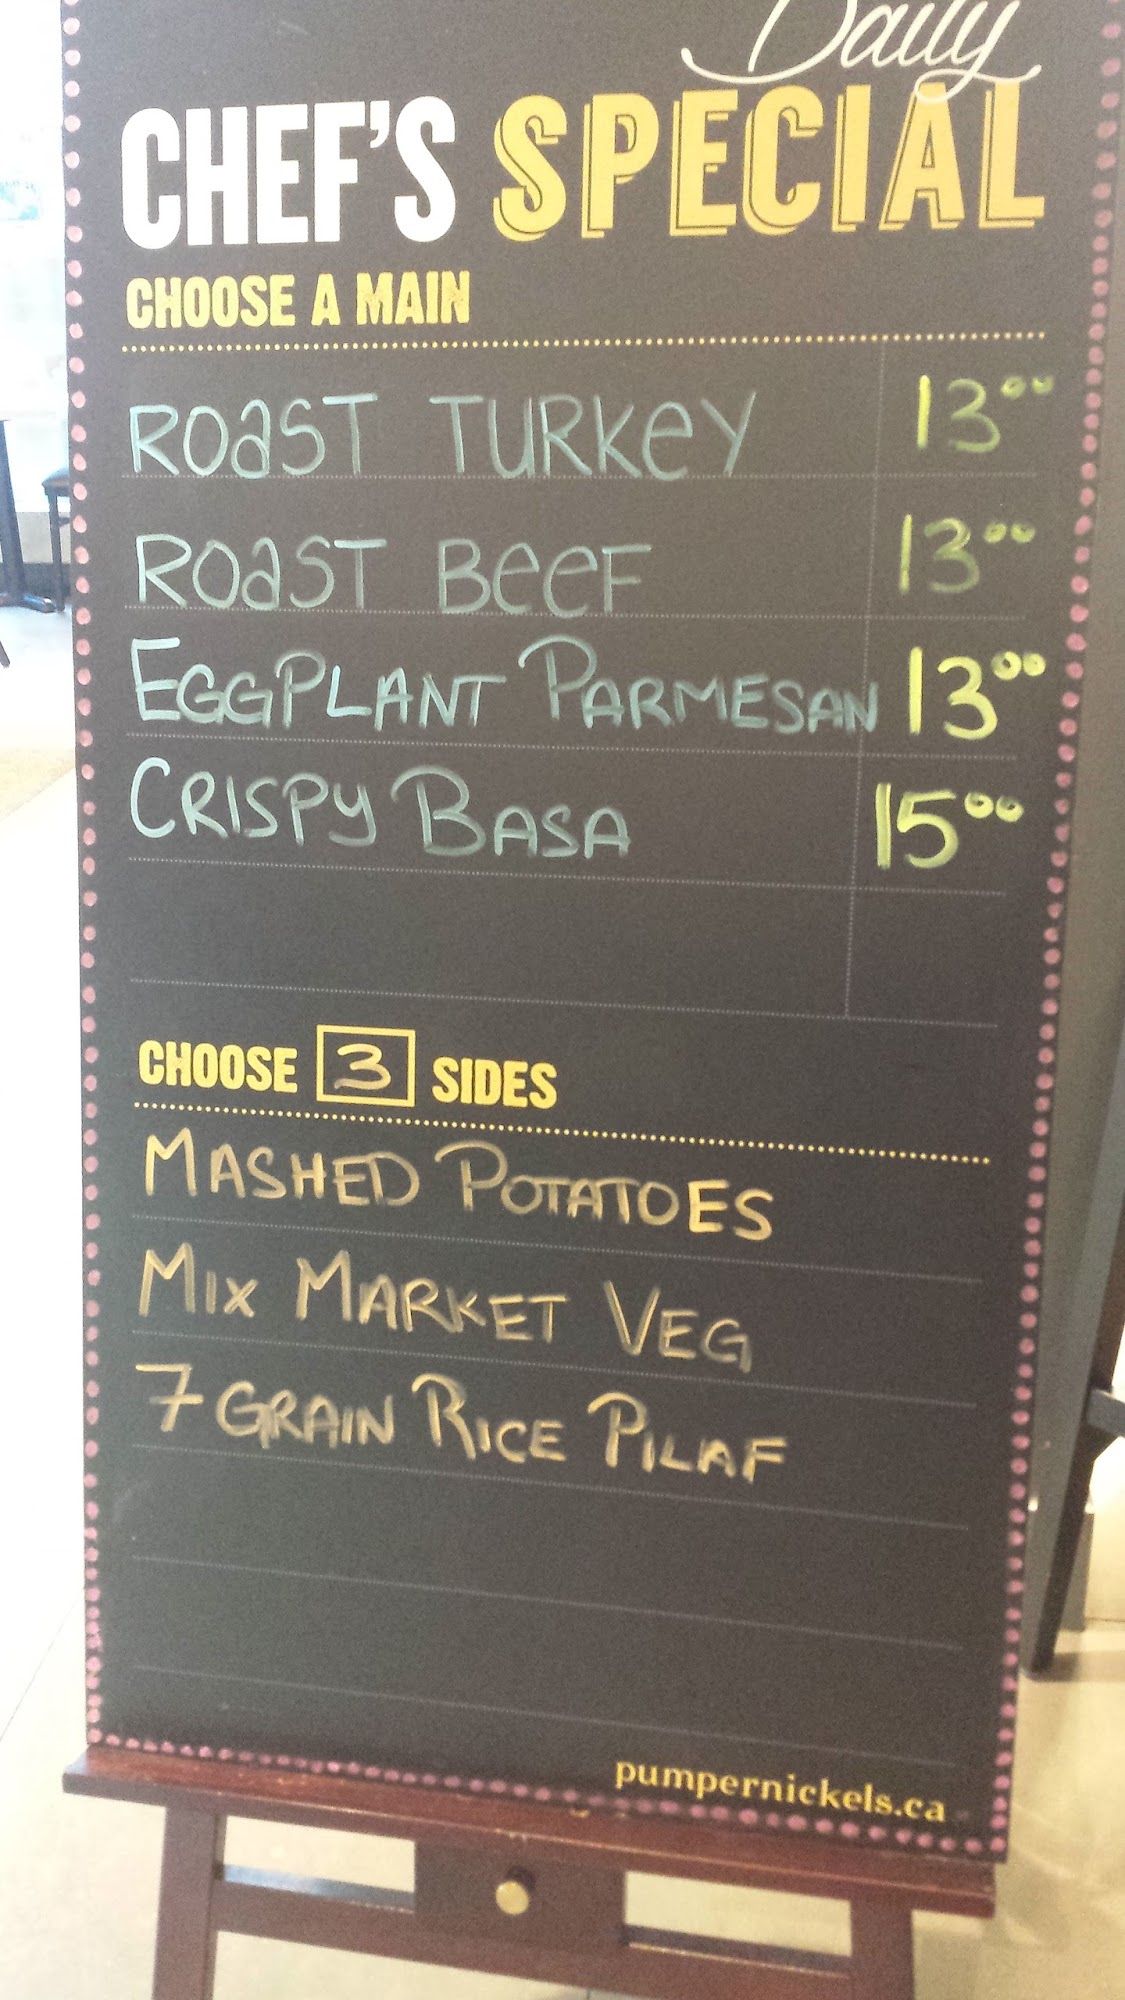 Daily
CHEF'S SPECIAL
CHOOSE A MAIN
ROAST TURKEY 13.00
ROAST BEEF 13.00
EGGPLANT PARMESAN 13.00
CRISPY BASA 15.00
CHOOSE 3 SIDES
MASHED POTATOES
MIX MARKET VEG
7 GRAIN RICE PILAF
pumpernickels.ca